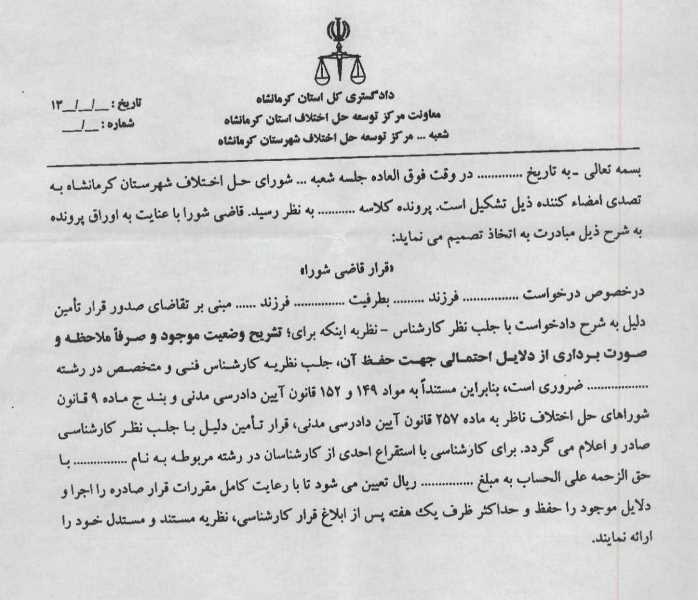 دادگستری کل استان کرمانشاه
معاونت مرکز توسعه حل اختلاف استان کرمانشاه
شعبه ... مرکز توسعه حل اختلاف شهرستان کرمانشاه
تاریخ : __/__/__۱۳
شماره : __/__
بسمه تعالی - به تاریخ ............. در وقت فوق العاده جلسه شعبه ... شورای حل اختلاف شهرستان کرمانشاه به
تصدی امضاء کننده ذیل تشکیل است. پرونده کلاسه ........... به نظر رسید. قاضی شورا با عنایت به اوراق پرونده
به شرح ذیل مبادرت به اتخاذ تصمیم می نماید:
«قرار قاضی شورا»
درخصوص درخواست ................ فرزند ......... بطرفیت .............. فرزند ...... مبنی بر تقاضای صدور قرار تأمین
دلیل به شرح دادخواست با جلب نظر کارشناس - نظربه اینکه برای؛ تشریح وضعیت موجود و صرفاً ملاحظه و
صورت برداری از دلایل احتمالی جهت حفظ آن، جلب نظریه کارشناس فنی و متخصص در رشته
................. ضروری است، بنابراین مستنداً به مواد ۱۴۹ و ۱۵۲ قانون آیین دادرسی مدنی و بند ج ماده ۹ قانون
شوراهای حل اختلاف ناظر به ماده ۲۵۷ قانون آیین دادرسی مدنی، قرار تأمین دلیل با جلب نظر کارشناسی
صادر و اعلام می گردد. برای کارشناسی با استقراع احدی از کارشناسان در رشته مربوطه به نام ............... با
حق الزحمه علی الحساب به مبلغ ............... ریال تعیین می شود تا با رعایت کامل مقررات قرار صادره را اجرا و
دلایل موجود را حفظ و حداکثر ظرف یک هفته پس از ابلاغ قرار کارشناسی، نظریه مستند و مستدل خود را
ارائه نمایند.